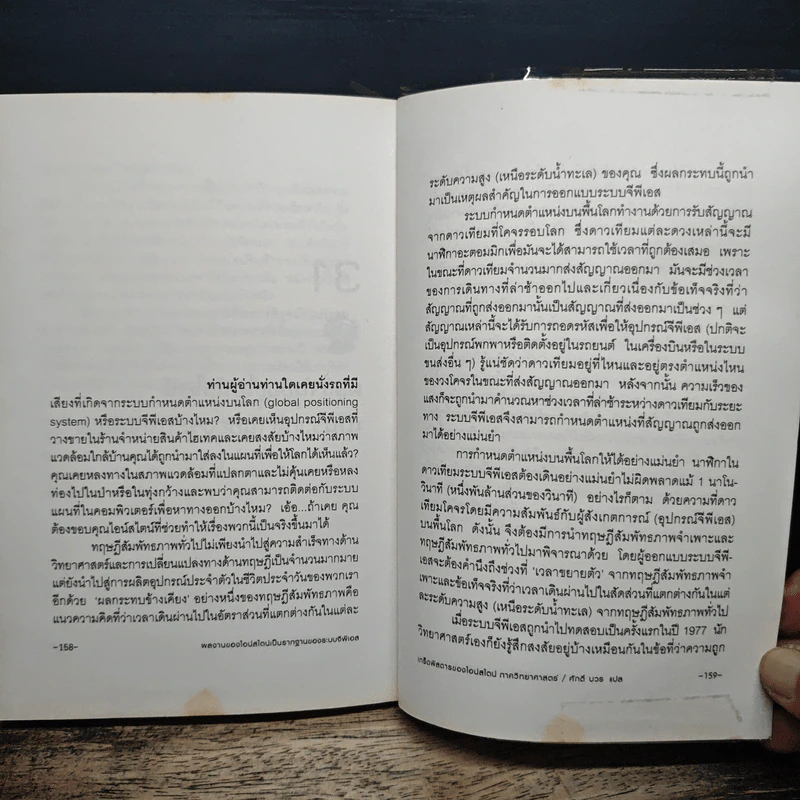 31
ท่านผู้อ่านท่านใดเคยนั่งรถที่มี
เสียงที่เกิดจากระบบกำหนดตำแหน่งบนโลก (global positioning
system) หรือระบบจีพีเอสบ้างไหม? หรือเคยเห็นอุปกรณ์จีพีเอสที่
วางขายในร้านจำหน่ายสินค้าไฮเทคและเคยสงสัยบ้างไหมว่าสภาพ
แวดล้อมใกล้บ้านคุณได้ถูกนำมาใส่ลงในแผนที่เพื่อให้โลกได้เห็นแล้ว?
คุณเคยหลงทางในสภาพแวดล้อมที่แปลกตาและไม่คุ้นเคยหรือหลง
ท่องไปในป่าหรือในทุ่งกว้างและพบว่าคุณสามารถติดต่อกับระบบ
แผนที่ในคอมพิวเตอร์เพื่อหาทางออกบ้างไหม? เอ้อ...ถ้าเคย คุณ
ต้องขอบคุณไอน์สไตน์ที่ช่วยทำให้เรื่องพวกนี้เป็นจริงขึ้นมาได้
ทฤษฎีสัมพัทธภาพทั่วไปไม่เพียงนำไปสู่ความสำเร็จทางด้าน
วิทยาศาสตร์และการเปลี่ยนแปลงทางด้านทฤษฎีเป็นจำนวนมากมาย
แต่ยังนำไปสู่การผลิตอุปกรณ์ประจำตัวในชีวิตประจำวันของพวกเรา
อีกด้วย ‘ผลกระทบข้างเคียง’ อย่างหนึ่งของทฤษฎีสัมพัทธภาพคือ
แนวความคิดที่ว่าเวลาเดินผ่านไปในอัตราส่วนที่แตกต่างกันในแต่ละ
-158-
ผลงานของไอน์สไตน์เป็นรากฐานของระบบจีพีเอส
ระดับความสูง (เหนือระดับน้ำทะเล) ของคุณ ซึ่งผลกระทบนี้ถูกนำ
มาเป็นเหตุผลสำคัญในการออกแบบระบบจีพีเอส
ระบบกำหนดตำแหน่งบนพื้นโลกทำงานด้วยการรับสัญญาณ
จากดาวเทียมที่โคจรรอบโลก ซึ่งดาวเทียมแต่ละดวงเหล่านี้จะมี
นาฬิกาอะตอมมิกเพื่อมันจะได้สามารถใช้เวลาที่ถูกต้องเสมอ เพราะ
ในขณะที่ดาวเทียมจำนวนมากส่งสัญญาณออกมา มันจะมีช่วงเวลา
ของการเดินทางที่ล่าช้าออกไปและเกี่ยวเนื่องกับข้อเท็จจริงที่ว่า
สัญญาณที่ถูกส่งออกมานั้นเป็นสัญญาณที่ส่งออกมาเป็นช่วง ๆ แต่
สัญญาณเหล่านี้จะได้รับการถอดรหัสเพื่อให้อุปกรณ์จีพีเอส (ปกติจะ
เป็นอุปกรณ์พกพาหรือติดตั้งอยู่ในรถยนต์ ในเครื่องบินหรือในระบบ
ขนส่งอื่น ๆ) รู้แน่ชัดว่าดาวเทียมอยู่ที่ไหนและอยู่ตรงตำแหน่งไหน
ของวงโคจรในขณะที่ส่งสัญญาณออกมา หลังจากนั้น ความเร็วของ
แสงก็จะถูกนำมาคำนวณหาช่วงเวลาที่ล่าช้าระหว่างดาวเทียมกับระยะ
ทาง ระบบจีพีเอสจึงสามารถกำหนดตำแหน่งที่สัญญาณถูกส่งออก
มาได้อย่างแม่นยำ
การกำหนดตำแหน่งบนพื้นโลกให้ได้อย่างแม่นยำ นาฬิกาใน
ดาวเทียมระบบจีพีเอสต้องเดินอย่างแม่นยำไม่ผิดพลาดแม้ 1 นาโน-
วินาที (หนึ่งพันล้านส่วนของวินาที) อย่างไรก็ตาม ด้วยความที่ดาว
เทียมโคจรโดยมีความสัมพันธ์กับผู้สังเกตการณ์ (อุปกรณ์จีพีเอส)
บนพื้นโลก ดังนั้น จึงต้องมีการนำทฤษฎีสัมพัทธภาพจำเพาะและ
ทฤษฎีสัมพัทธภาพทั่วไปมาพิจารณาด้วย โดยผู้ออกแบบระบบจีพี-
เอสจะต้องคำนึงถึงช่วงที่ ‘เวลาขยายตัว’ จากทฤษฎีสัมพัทธภาพจำ
เพาะและข้อเท็จจริงที่ว่าเวลาเดินผ่านไปในสัดส่วนที่แตกต่างกันในแต่
ละระดับความสูง (เหนือระดับน้ำทะเล) จากทฤษฎีสัมพัทธภาพทั่วไป
เมื่อระบบจีพีเอสถูกนำไปทดสอบเป็นครั้งแรกในปี 1977 นัก
วิทยาศาสตร์เองก็ยังรู้สึกสงสัยอยู่บ้างเหมือนกันในข้อที่ว่าความถูก
เกร็ดพิสดารของไอน์สไตน์ ภาควิทยาศาสตร์ / ศักดิ์ บวร แปล
-159-